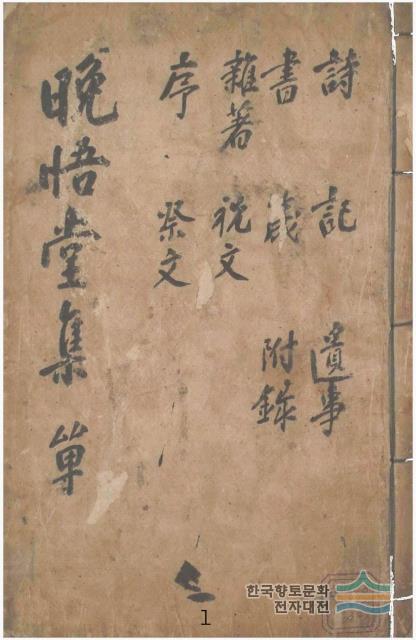 詩 記 遺事
書 附錄
雜著 祝文
序 祭文
晚悟堂集 單
한국향토문화
전자대전
1